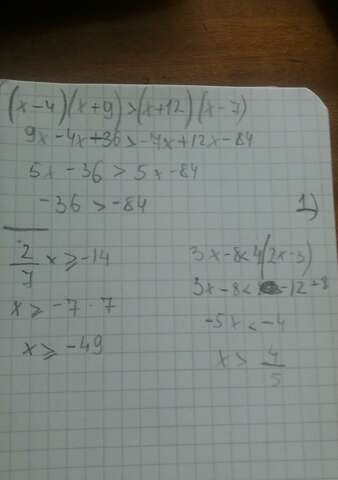 (x-4)(x+9)>(x+12)(x-7)
9x-4x+36>-7x+12x-84
5x-36>5x-84
-36>-84
1)
2/7 x≥-14
x≥-7·7
x≥-49
3x-8<4(2x-3)
3x-8<-12+8
-5x<-4
x>4/5